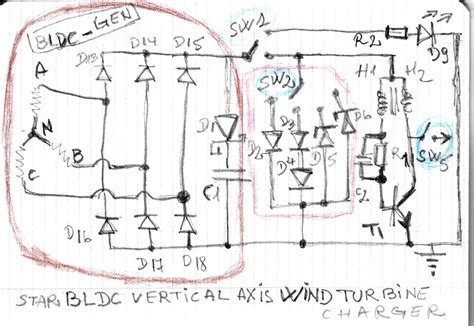 BLDC-GEN
D13
D14
D15
SW1
R2
D9
A
SW2
H1
H2
N
B
C
D1
D2
D3
D4
D5
D6
R1
SW5
C1
C2
T1
D16
D17
D18
STAR BLDC VERTICAL AXIS WIND TURBINE
CHARGER